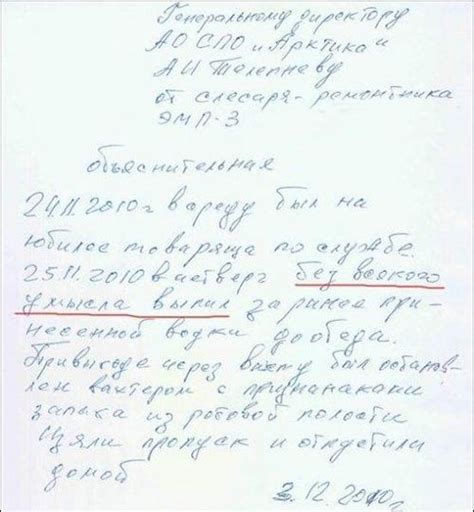 Генеральному директору
АО СПО „Арктика"
А И Телепневу
от слесаря-ремонтника
ЭМП-3
объяснительная
24.11.2010 г в среду был на
юбилее товаряща по службе.
25.11.2010 в четверг без всякого
умысла выпил за ранее при-
несенной водки до обеда.
При выходе через вахту был останов-
лен вахтером с признаками
запаха из ротовой полости
Изяли пропуск и отпустили
домой
3.12.2010 г